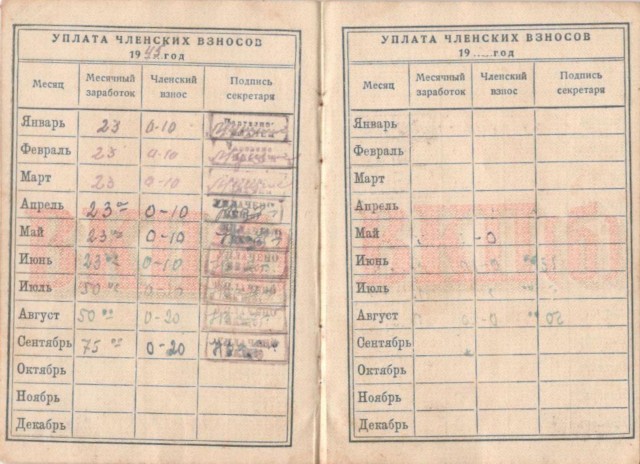 УПЛАТА ЧЛЕНСКИХ ВЗНОСОВ
1945 год
Месяц Месячный заработок Членский взнос Подпись секретаря
Январь 23 0-10
Февраль 23 0-10
Март 23 0-10
Апрель 23 00 0-10 УПЛАЧЕНО
Май 23 00 0-10 УПЛАЧЕНО
Июнь 23 00 0-10 УПЛАЧЕНО
Июль 50 00 0-10 УПЛАЧЕНО
Август 50 00 0-20 УПЛАЧЕНО
Сентябрь 75 00 0-20 УПЛАЧЕНО
Октябрь
Ноябрь
Декабрь
УПЛАТА ЧЛЕНСКИХ ВЗНОСОВ
19 ..... год
Месяц Месячный заработок Членский взнос Подпись секретаря
Январь
Февраль
Март
Апрель
Май
Июнь
Июль
Август
Сентябрь
Октябрь
Ноябрь
Декабрь
ВКП(б)